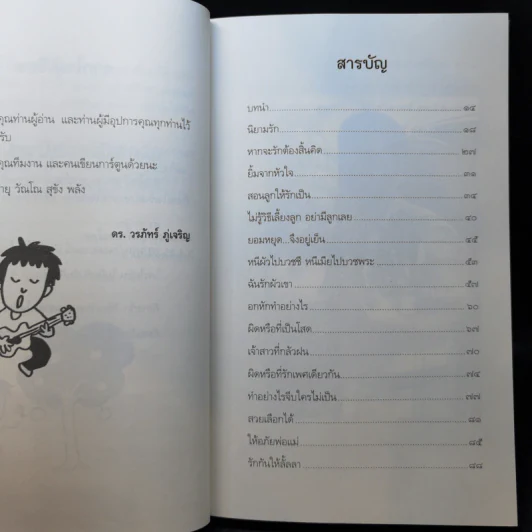 คุณท่านผู้อ่าน และท่านผู้มีอุปการคุณทุกท่านไว้
รับ
คุณทีมงาน และคนเขียนการ์ตูนด้วยนะ
ายุ วัณโณ สุขัง พลัง
ดร. วรภัทร์ ภู่เจริญ
สารบัญ
บทนำ ๑๕
นิยามรัก ๑๘
หากจะรักต้องสิ้นคิด ๒๗
ยิ้มจากหัวใจ ๓๑
สอนลูกให้รักเป็น ๓๕
ไม่รู้วิธีเลี้ยงลูก อย่ามีลูกเลย ๔๐
ยอมหยุด...จึงอยู่เย็น ๔๕
หนีผัวไปบวชชี หนีเมียไปบวชพระ ๕๓
ฉันรักผัวเขา ๕๗
อกหักทำอย่างไร ๖๐
ผิดหรือที่เป็นโสด ๖๗
เจ้าสาวที่กลัวฝน ๗๐
ผิดหรือที่รักเพศเดียวกัน ๗๔
ทำอย่างไรจีบใครไม่เป็น ๗๗
สวยเลือกได้ ๘๑
ให้อภัยพ่อแม่ ๘๕
รักกันให้ลั้ลลา ๘๘